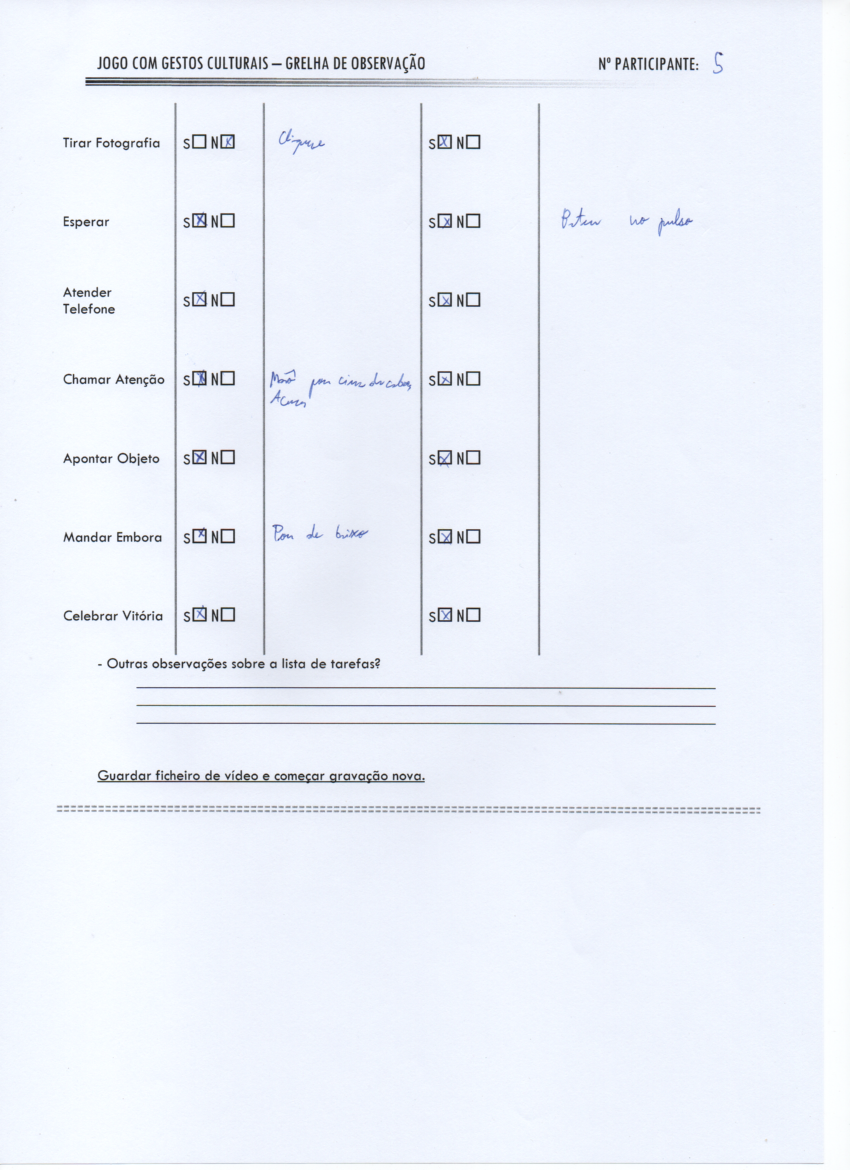 JOGO COM GESTOS CULTURAIS – GRELHA DE OBSERVAÇÃO Nº PARTICIPANTE: 5
Tirar Fotografia S N X Clique S X N
Esperar S X N S X N no pulso
Atender
Telefone S X N S X N
Chamar Atenção S X N Mão por cima da S X N
Apontar Objeto S X N S X N
Mandar Embora S X N Por de baixo S X N
Celebrar Vitória S X N S X N
- Outras observações sobre a lista de tarefas?
Guardar ficheiro de vídeo e começar gravação nova.